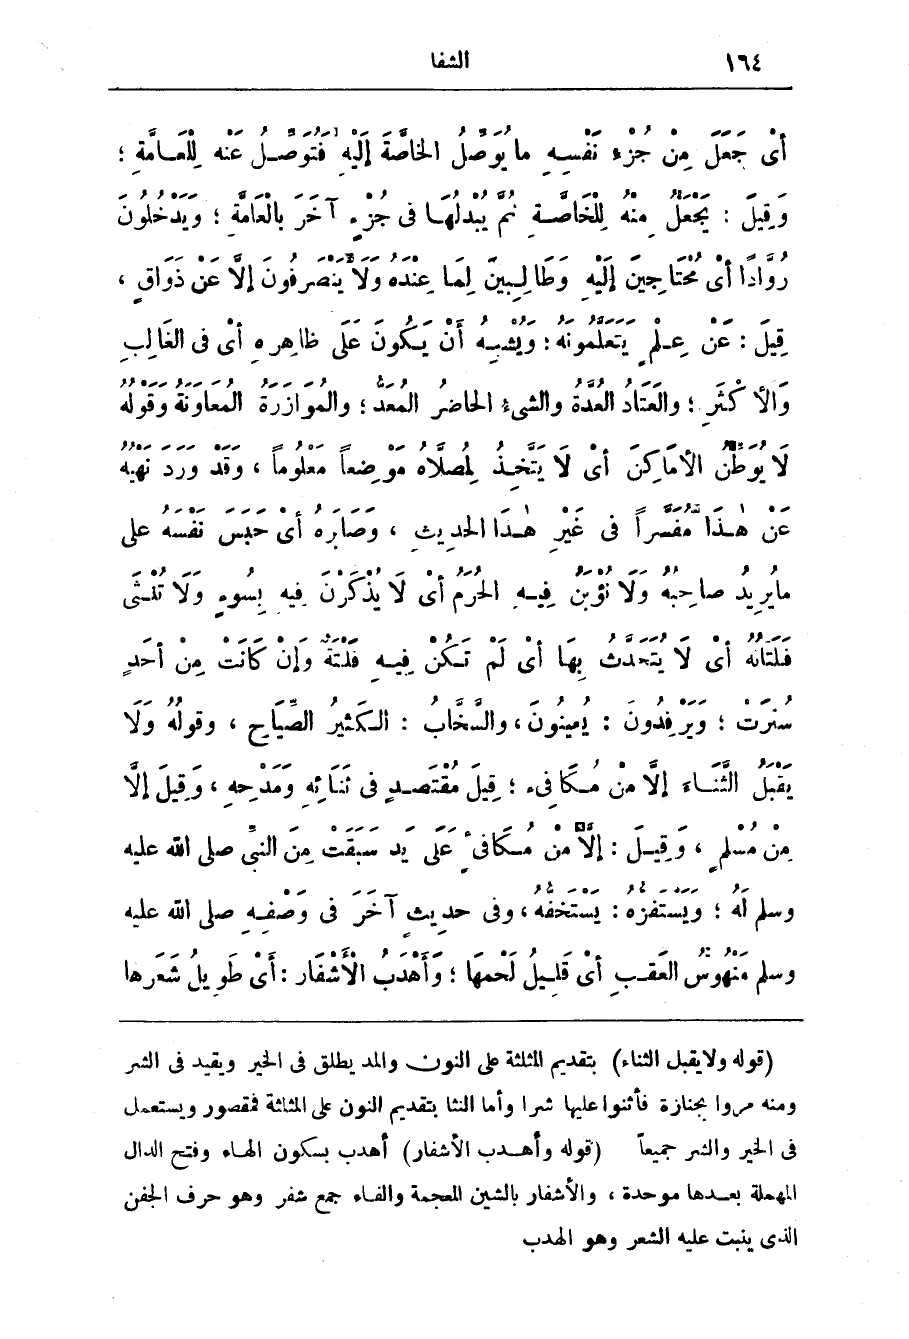 ١٦٤ الشفا
أَىْ جَعَلَ مِنْ جُزْءِ نَفْسِهِ مَا يُوَصِّلُ الخَاصَّةَ إِلَيْهِ فَتُوَصِّلُ عَنْهُ لِلْعَامَّةِ ؛
وَقِيلَ : يَجْعَلُ مِنْهُ لِلْخَاصَّةِ ثُمَّ يُبْدِلُهَا فِى جُزْءٍ آخَرَ بِالْعَامَّةِ ؛ وَيَدْخُلُونَ
رُوَّادًا أَىْ مُحْتَاجِينَ إِلَيْهِ وَطَالِبِينَ لِمَا عِنْدَهُ وَلَا يَنْصَرِفُونَ إِلَّا عَنْ ذَوَاقٍ ،
قِيلَ : عَنْ عِلْمٍ يَتَعَلَّمُونَهُ ؛ وَيُشْبِهُ أَنْ يَكُونَ عَلَى ظَاهِرِهِ أَىْ فِى الغَالِبِ
وَالأَكْثَرِ ؛ وَالعَتَادُ العُدَّةُ وَالشىءُ الحَاضِرُ المُعَدُّ ؛ وَالمُوَازَرَةُ المُعَاوَنَةُ وَقَوْلُهُ
لَا يُوَطِّنُ الأَمَاكِنَ أَىْ لَا يَتَّخِذُ لِمُصَلَّاهُ مَوْضِعاً مَعْلُوماً ، وَقَدْ وَرَدَ نَهْيُهُ
عَنْ هٰذَا مُفَسَّراً فِى غَيْرِ هٰذَا الحَدِيثِ ، وَصَابَرَهُ أَىْ حَبَسَ نَفْسَهُ عَلَى
مَا يُرِيدُ صَاحِبُهُ وَلَا تُؤْبَنُ فِيهِ الحُرَمُ أَىْ لَا يُذْكَرْنَ فِيهِ بِسُوءٍ وَلَا تُنْثَى
فَلَتَاتُهُ أَىْ لَا يُتَحَدَّثُ بِهَا أَىْ لَمْ تَكُنْ فِيهِ فَلْتَةٌ وَإِنْ كَانَتْ مِنْ أَحَدٍ
سُتِرَتْ ؛ وَيَرْفِدُونَ : يُعِينُونَ ، وَالسَّخَّابُ : الكَثِيرُ الصِّيَاحِ ، وَقَوْلُهُ وَلَا
يَقْبَلُ الثَّنَاءَ إِلَّا مِنْ مُكَافِىءٍ ؛ قِيلَ مُقْتَصِدٍ فِى ثَنَائِهِ وَمَدْحِهِ ، وَقِيلَ إِلَّا
مِنْ مُسْلِمٍ ، وَقِيلَ : إِلَّا مِنْ مُكَافِىءٍ عَلَى يَدٍ سَبَقَتْ مِنَ النبىِّ صلى الله عليه
وسلم لَهُ ؛ وَيَسْتَفِزُّهُ : يَسْتَخِفُّهُ ، وَفِى حَدِيثٍ آخَرَ فِى وَصْفِهِ صلى الله عليه
وسلم مَنْهُوسُ العَقِبِ أَىْ قَلِيلُ لَحْمِهَا ؛ وَأَهْدَبُ الْأَشْفَارِ : أَىْ طَوِيلُ شَعَرِهَا
(قوله ولا يقبل الثناء) بتقديم المثلثة على النون والمد يطلق فى الخير ويقيد فى الشر
ومنه مروا بجنازة فأثنوا عليها شرا وأما النثا بتقديم النون على المثلثة فمقصور ويستعمل
فى الخير والشر جميعاً (قوله وأهدب الأشفار) أهدب بسكون الهاء وفتح الدال
المهملة بعدها موحدة ، والأشفار بالشين المعجمة والفاء جمع شفر وهو حرف الجفن
الذى ينبت عليه الشعر وهو الهدب